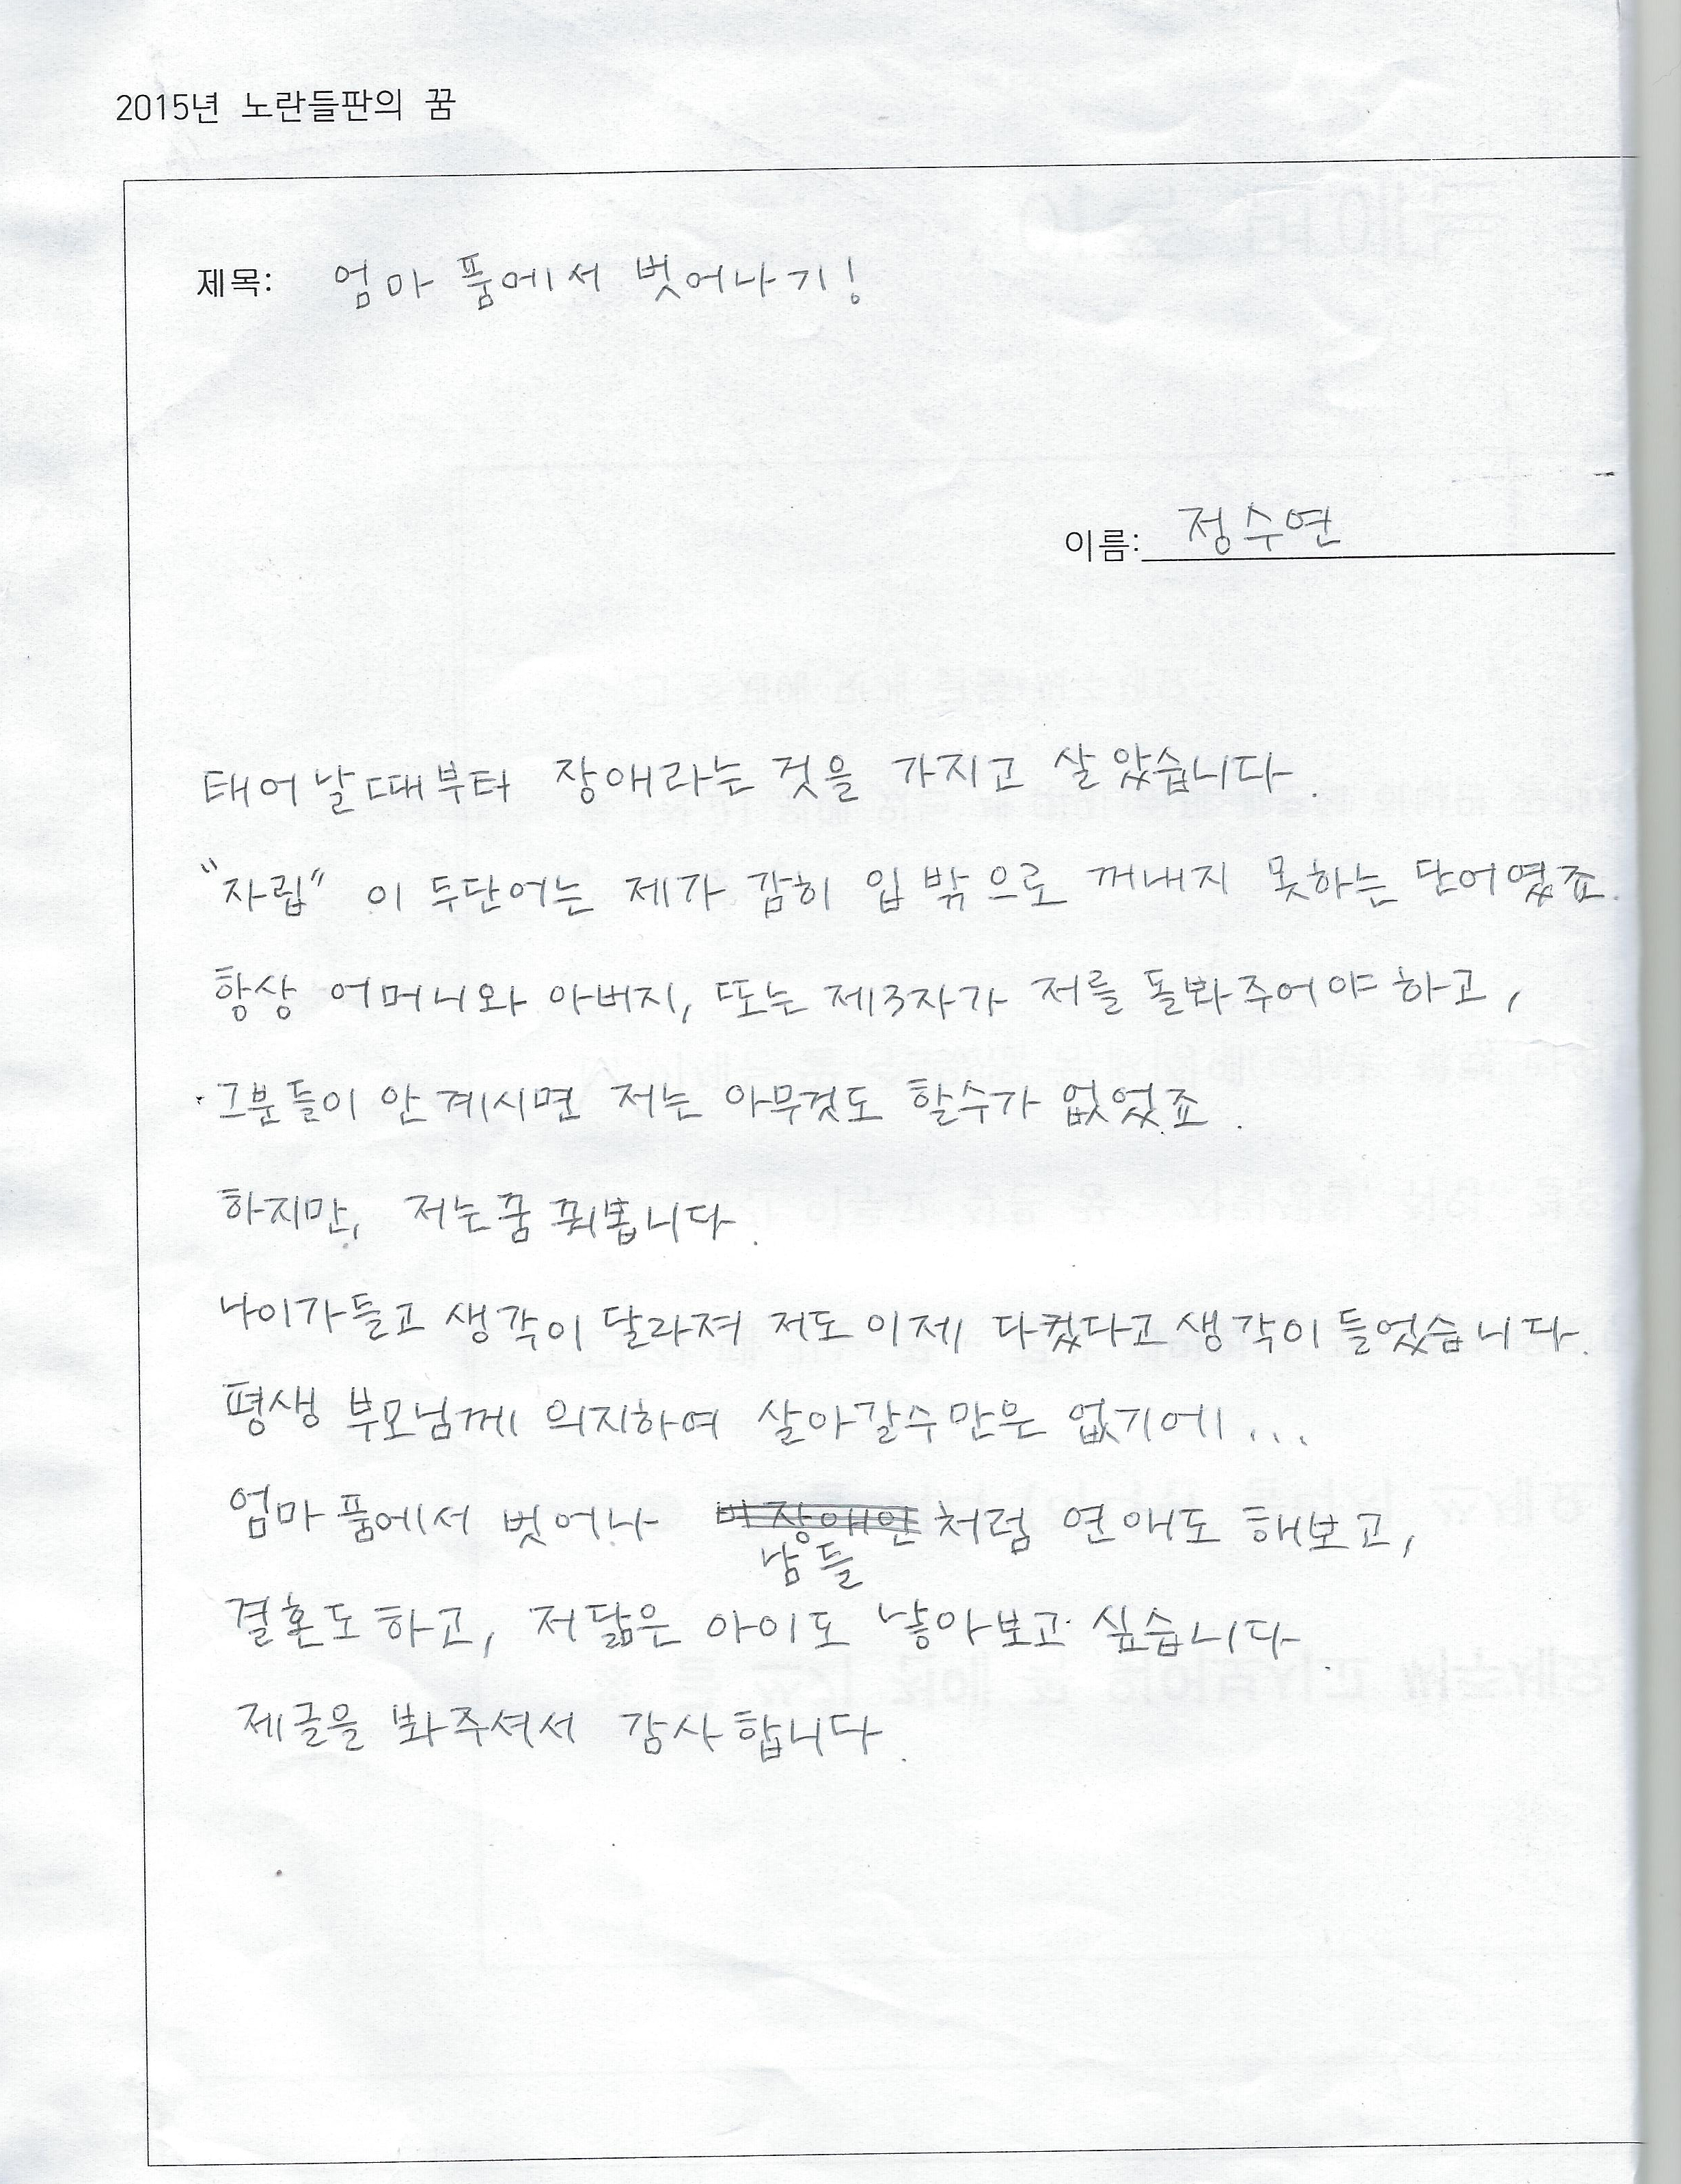 2015년 노란들판의 꿈
제목: 엄마 품에서 벗어나기!
이름: 정수연
태어날때부터 장애라는 것을 가지고 살았습니다.
"자립" 이 두단어는 제가 감히 입 밖으로 꺼내지 못하는 단어였죠.
항상 어머니와 아버지, 또는 제3자가 저를 돌봐주어야 하고,
그분들이 안 계시면 저는 아무것도 할수가 없었죠.
하지만, 저는 꿈 꿔봅니다.
나이가 들고 생각이 달라져 저도 이제 다컸다고 생각이 들었습니다.
평생 부모님께 의지하여 살아갈수만은 없기에...
엄마 품에서 벗어나 비장애인처럼 연애도 해보고,
남들
결혼도 하고, 저닮은 아이도 낳아보고 싶습니다.
제글을 봐주셔서 감사합니다.